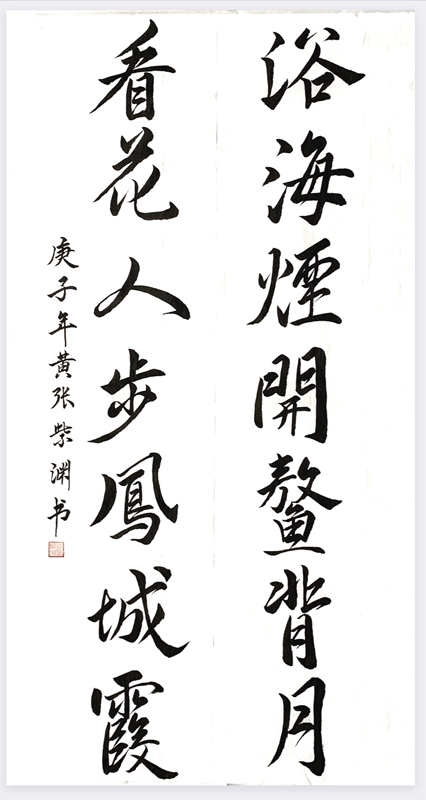 浴海煙開鼇背月
看花人步鳳城霞
庚子年黄张紫渊书